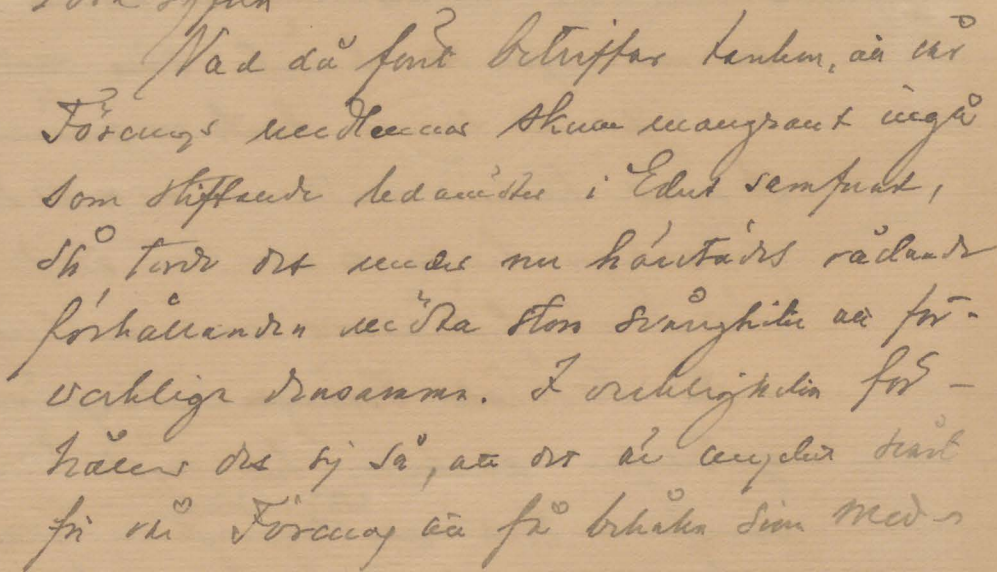 Vad då först beträffar tanken, att vår
Förenings medlemmar skulle mangrant ingå
som stiftande ledamöter i Edert samfund,
så torde det under nu härstädes rådande
förhållanden möta stora svårigheter att för-
verkliga densamma. I verkligheten för-
håller det sig så, att det är mycket svårt
för vår Förening att få behålla sina med-